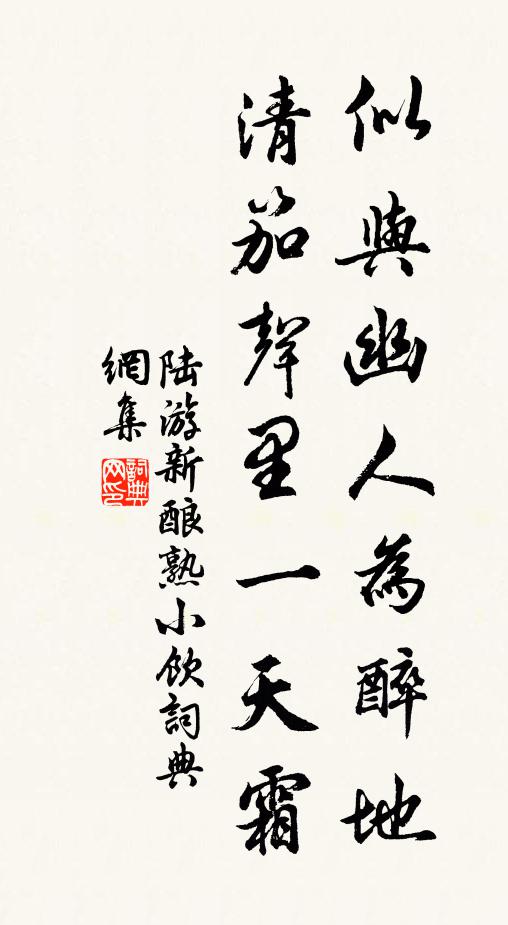 似與幽人為醉地
清笳聲里一天霜
陆游新酿熟小飲詞典
網集
詞典
网印